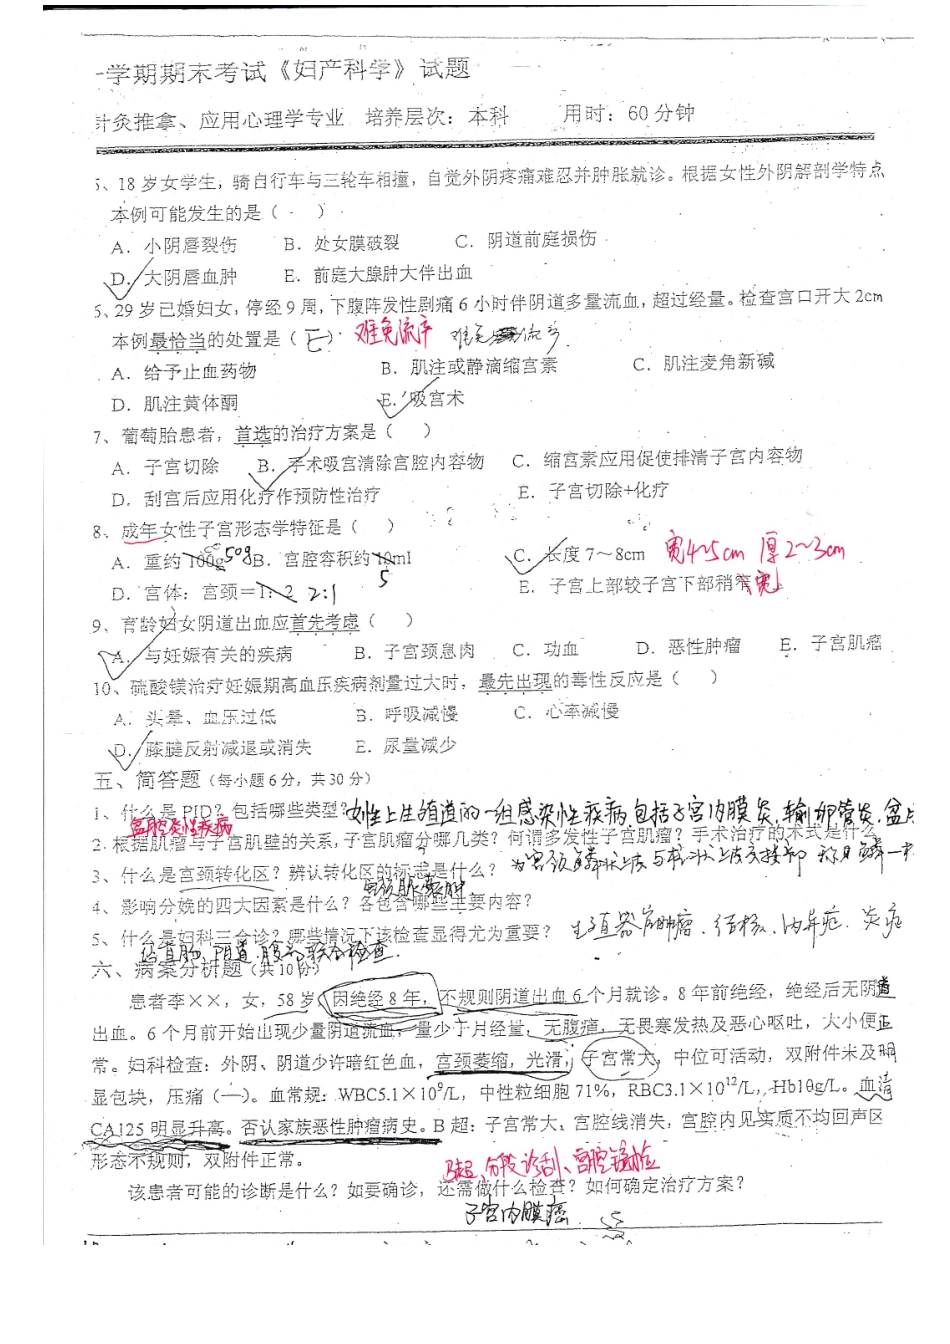 一学期期末考试《妇产科学》试题
针灸推拿、应用心理学专业 培养层次：本科 用时：60分钟
5、18岁女学生，骑自行车与三轮车相撞，自觉外阴疼痛难忍并肿胀就诊。根据女性外阴解剖学特点
本例可能发生的是（ ）
A．小阴唇裂伤 B．处女膜破裂 C．阴道前庭损伤
D．大阴唇血肿 E．前庭大腺肿大伴出血
5、29岁已婚妇女，停经9周，下腹阵发性剧痛6小时伴阴道多量流血，超过经量。检查宫口开大2cm
本例最恰当的处置是（E） 难免流产 难免流产
A．给予止血药物 B．肌注或静滴缩宫素 C．肌注麦角新碱
D．肌注黄体酮 E．吸宫术
7、葡萄胎患者，首选的治疗方案是（ ）
A．子宫切除 B．手术吸宫清除宫腔内容物 C．缩宫素应用促使排清子宫内容物
D．刮宫后应用化疗作预防性治疗 E．子宫切除+化疗
8、成年女性子宫形态学特征是（ ）
A．重约100g 50g B．宫腔容积约10ml 5 C．长度7～8cm 宽4~5cm 厚2~3cm
D．宫体：宫颈=1：2 2:1 E．子宫上部较子宫下部稍窄 宽
9、育龄妇女阴道出血应首先考虑（ ）
A．与妊娠有关的疾病 B．子宫颈息肉 C．功血 D．恶性肿瘤 E．子宫肌瘤
10、硫酸镁治疗妊娠期高血压疾病剂量过大时，最先出现的毒性反应是（ ）
A．头晕、血压过低 B．呼吸减慢 C．心率减慢
D．膝腱反射减退或消失 E．尿量减少
五、简答题（每小题6分，共30分）
1、什么是PID？包括哪些类型？女性上生殖道的一组感染性疾病,包括子宫内膜炎,输卵管炎,盆
盆腔炎性疾病
2．根据肌瘤与子宫肌壁的关系，子宫肌瘤分哪几类？何谓多发性子宫肌瘤？手术治疗的术式是什么
3、什么是宫颈转化区？辨认转化区的标志是什么？ 为宫颈鳞状上皮与柱状上皮交接部 称 鳞一柱
宫颈腺囊肿
4、影响分娩的四大因素是什么？各包含哪些主要内容？
5、什么是妇科三合诊？哪些情况下该检查显得尤为重要？ 生殖器官肿瘤、结核、内异症、炎症
经直肠、阴道、腹部联合检查.
六、病案分析题（共10分）
患者李××，女，58岁，因绝经8年，不规则阴道出血6个月就诊。8年前绝经，绝经后无阴道
出血。6个月前开始出现少量阴道流血，量少于月经量，无腹痛，无畏寒发热及恶心呕吐，大小便正
常。妇科检查：外阴、阴道少许暗红色血，宫颈萎缩，光滑，子宫常大，中位可活动，双附件未及明
显包块，压痛（—）。血常规：WBC5.1×10⁹/L，中性粒细胞71%，RBC3.1×10¹²/L，Hb10g/L。血清
CA125明显升高。否认家族恶性肿瘤病史。B超：子宫常大，宫腔线消失，宫腔内见实质不均回声区
形态不规则，双附件正常。
B超、分段诊刮、宫腔镜检
该患者可能的诊断是什么？如要确诊，还需做什么检查？如何确定治疗方案？
子宫内膜癌